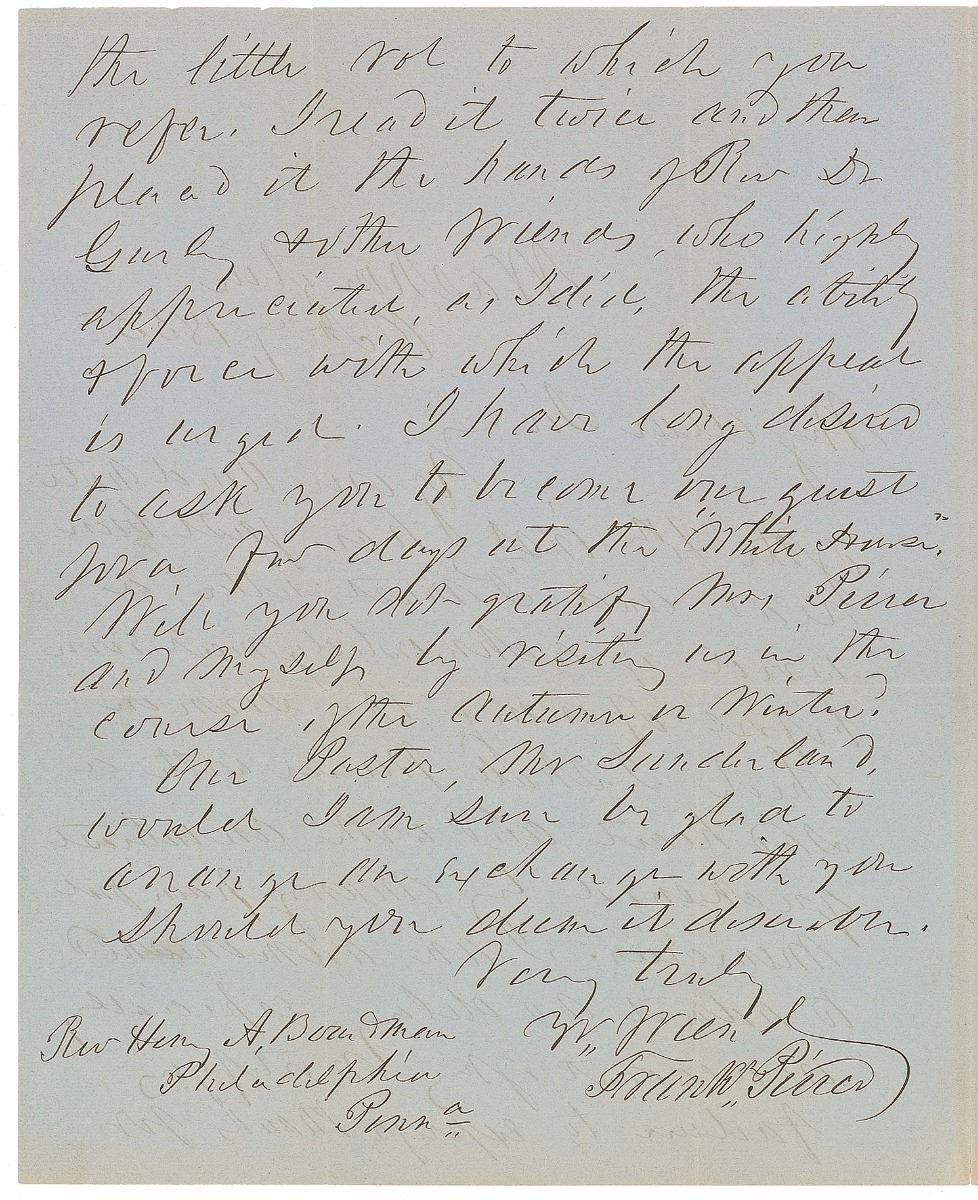 the little vol to which you
refer. I read it twice and then
placed it the hands of Rev Dr
Gurley & other friends, who highly
appreciated, as I did, the ability
& force with which the appeal
is urged. I have long desired
to ask you to become our guest
for a few days at the "White House".
Will you not gratify Mrs Pierce
and myself by visiting us in the
course of the Autumn or Winter?
Our Pastor, Mr Sunderland,
would I am sure be glad to
arrange an exchange with you
should you deem it desirable.
Very truly
Yr. friend
Rev Henry A. Boardman
Philadelphia
Penna
Frankn. Pierce